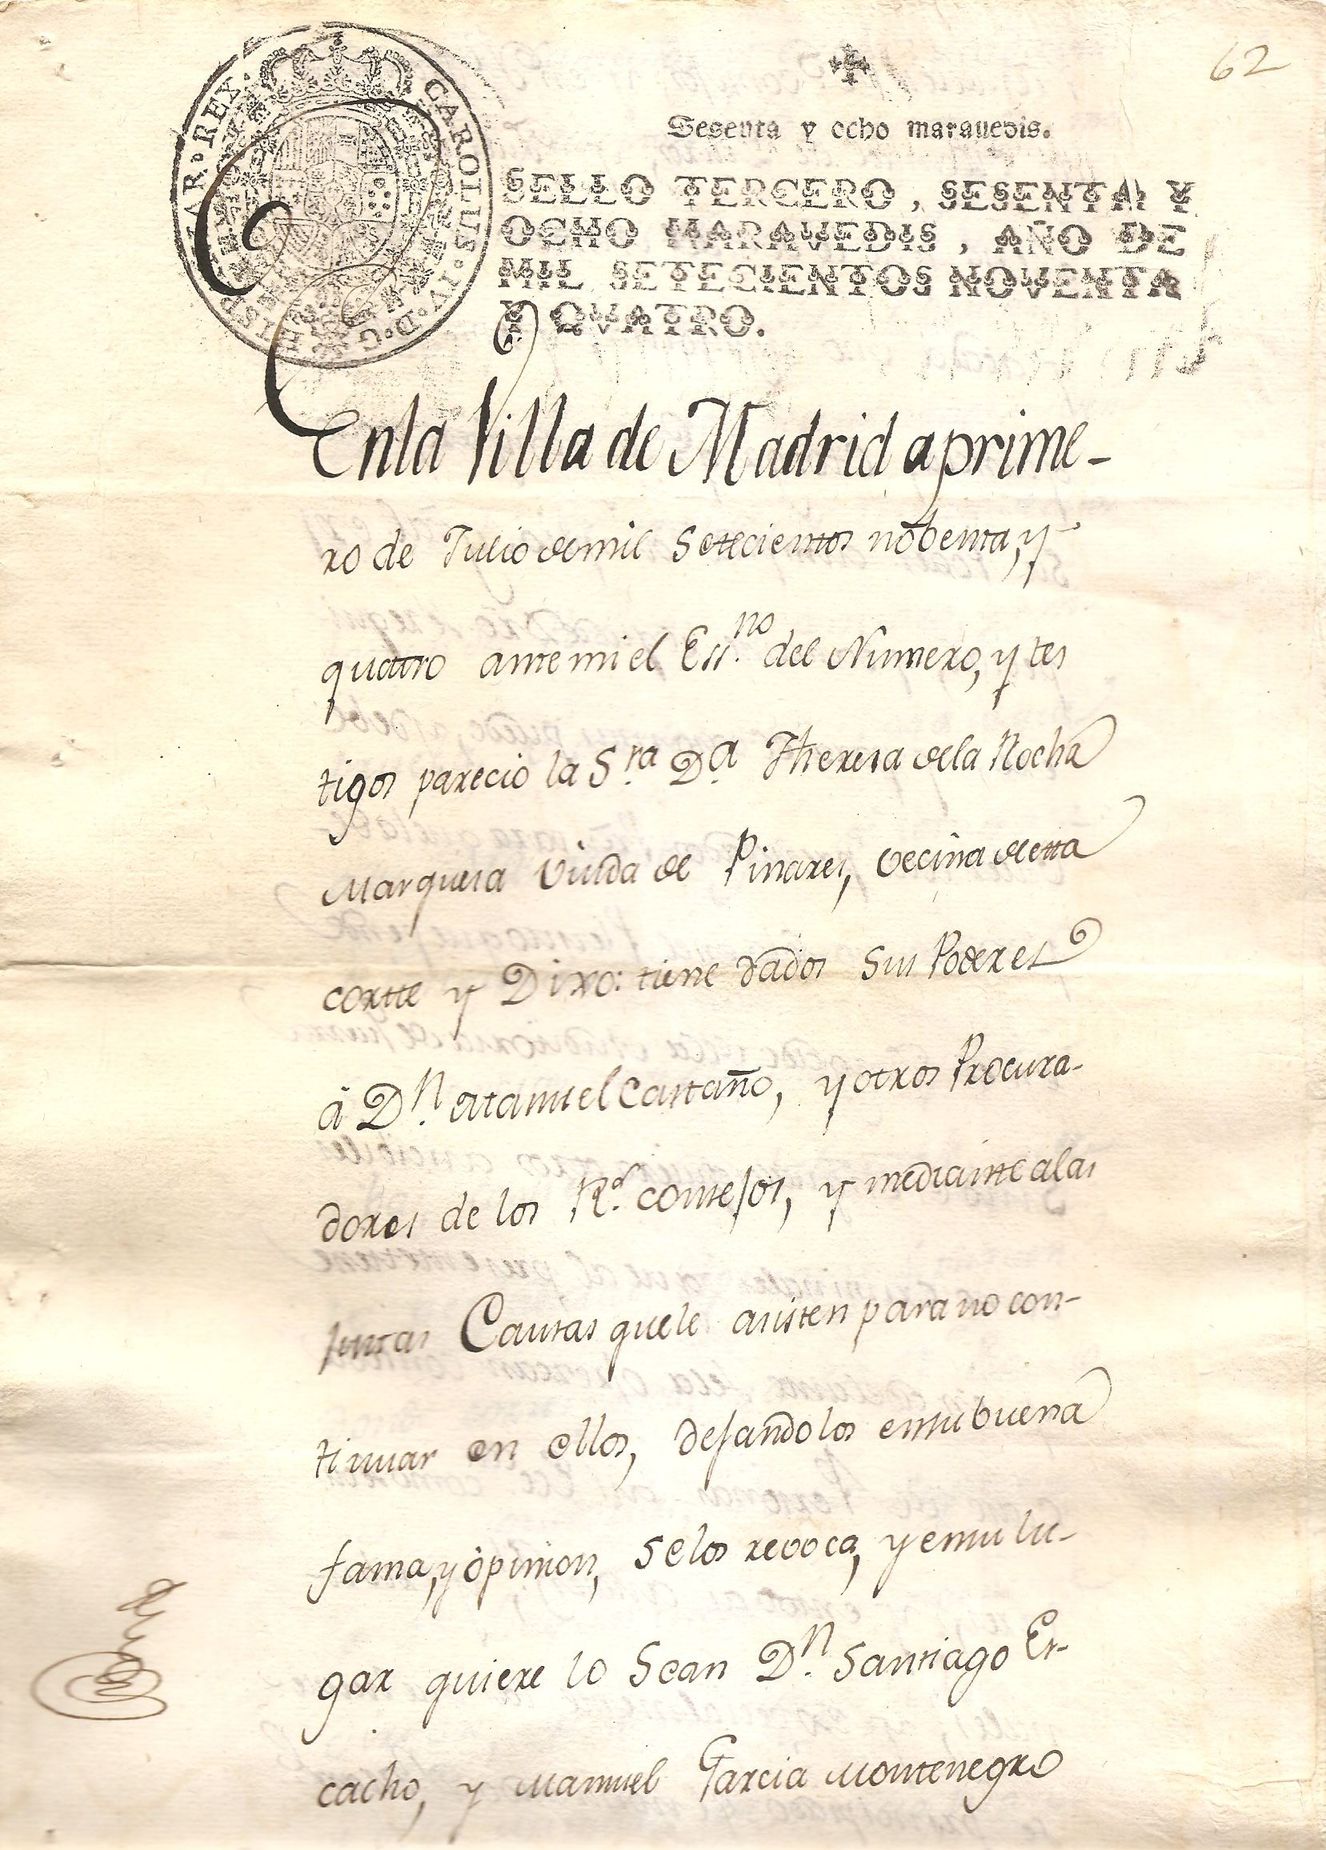 62
Sesenta y ocho maravedis.
CAROLUS·IV·D·G· HISP REX·
SELLO TERCERO, SESENTA Y
OCHO MARAVEDIS, AÑO DE
MIL SETECIENTOS NOVENTA
Y QVATRO.
En la Villa de Madrid a prime-
ro de Julio de mil Setecientos nobenta, y
quatro ante mi el Ess.no del Numero, y tes
tigos parecio la S.ra D.a Theresa de la Rocha
Marquesa Viuda de Pinares, vecina de esta
cortte y Dixo: tiene dados sus Poderes
á D.n Manuel Castaño, y otros Procura-
dores de los R.s consejos, y mediante a las
justas Causas que le asisten para no con-
tinuar en ellos, dejandolos en su buena
fama, y opinion, se los revoca, y en su lu-
gar quiere lo Sean D.n Santiago Es-
cacho, y Manuel Garcia Montenegro